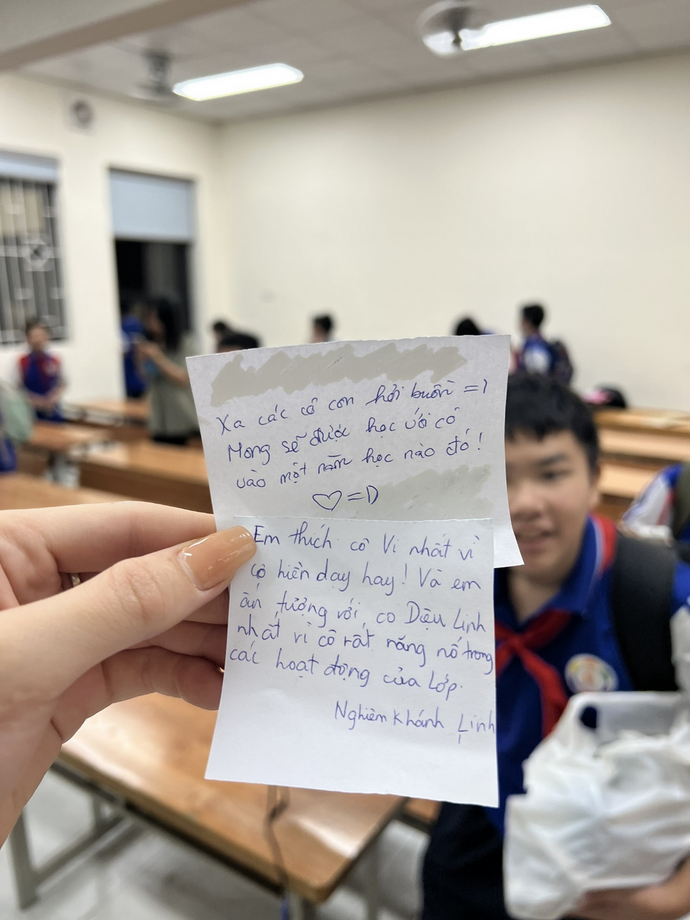 Xa các cô con hơi buồn =)
Mong sẽ được học với cô
vào một năm học nào đó!
♡=D
Em thích cô Vi nhất vì
cô hiền dạy hay! Và em
ấn tượng với co Diệu Linh
nhất vì cô rất năng nổ trong
các hoạt động của lớp.
Nghiêm Khánh Linh